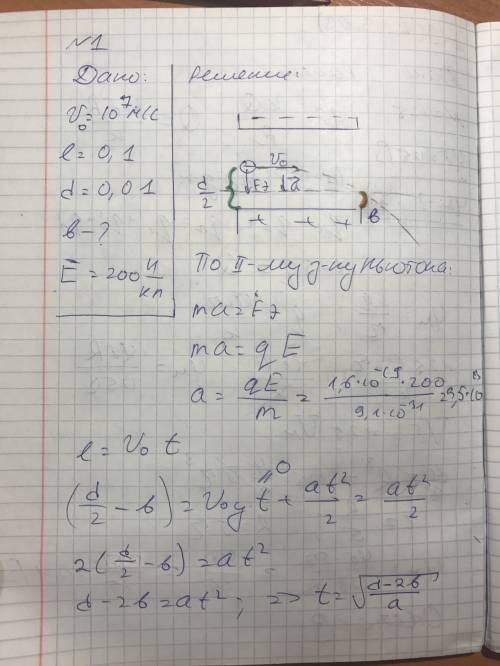 №1
Дано: Решение:
V₀ = 10⁷ м/с
l = 0,1
d = 0,01
в - ?
E = 200 Н/кл
- - - - -
V₀
d/2 Fэ a в
+ + +
По II-му з-ну Ньютона:
ma = Fэ
ma = qE
a = qE/m = 1,6·10⁻¹⁹·200 / 9,1·10⁻³¹ = 3,5·10¹³
l = V₀ t
(d/2 - в) = V₀y t + at²/2 = at²/2
0
2(d/2 - в) = at²
d - 2в = at²; => t = √((d-2в)/a)